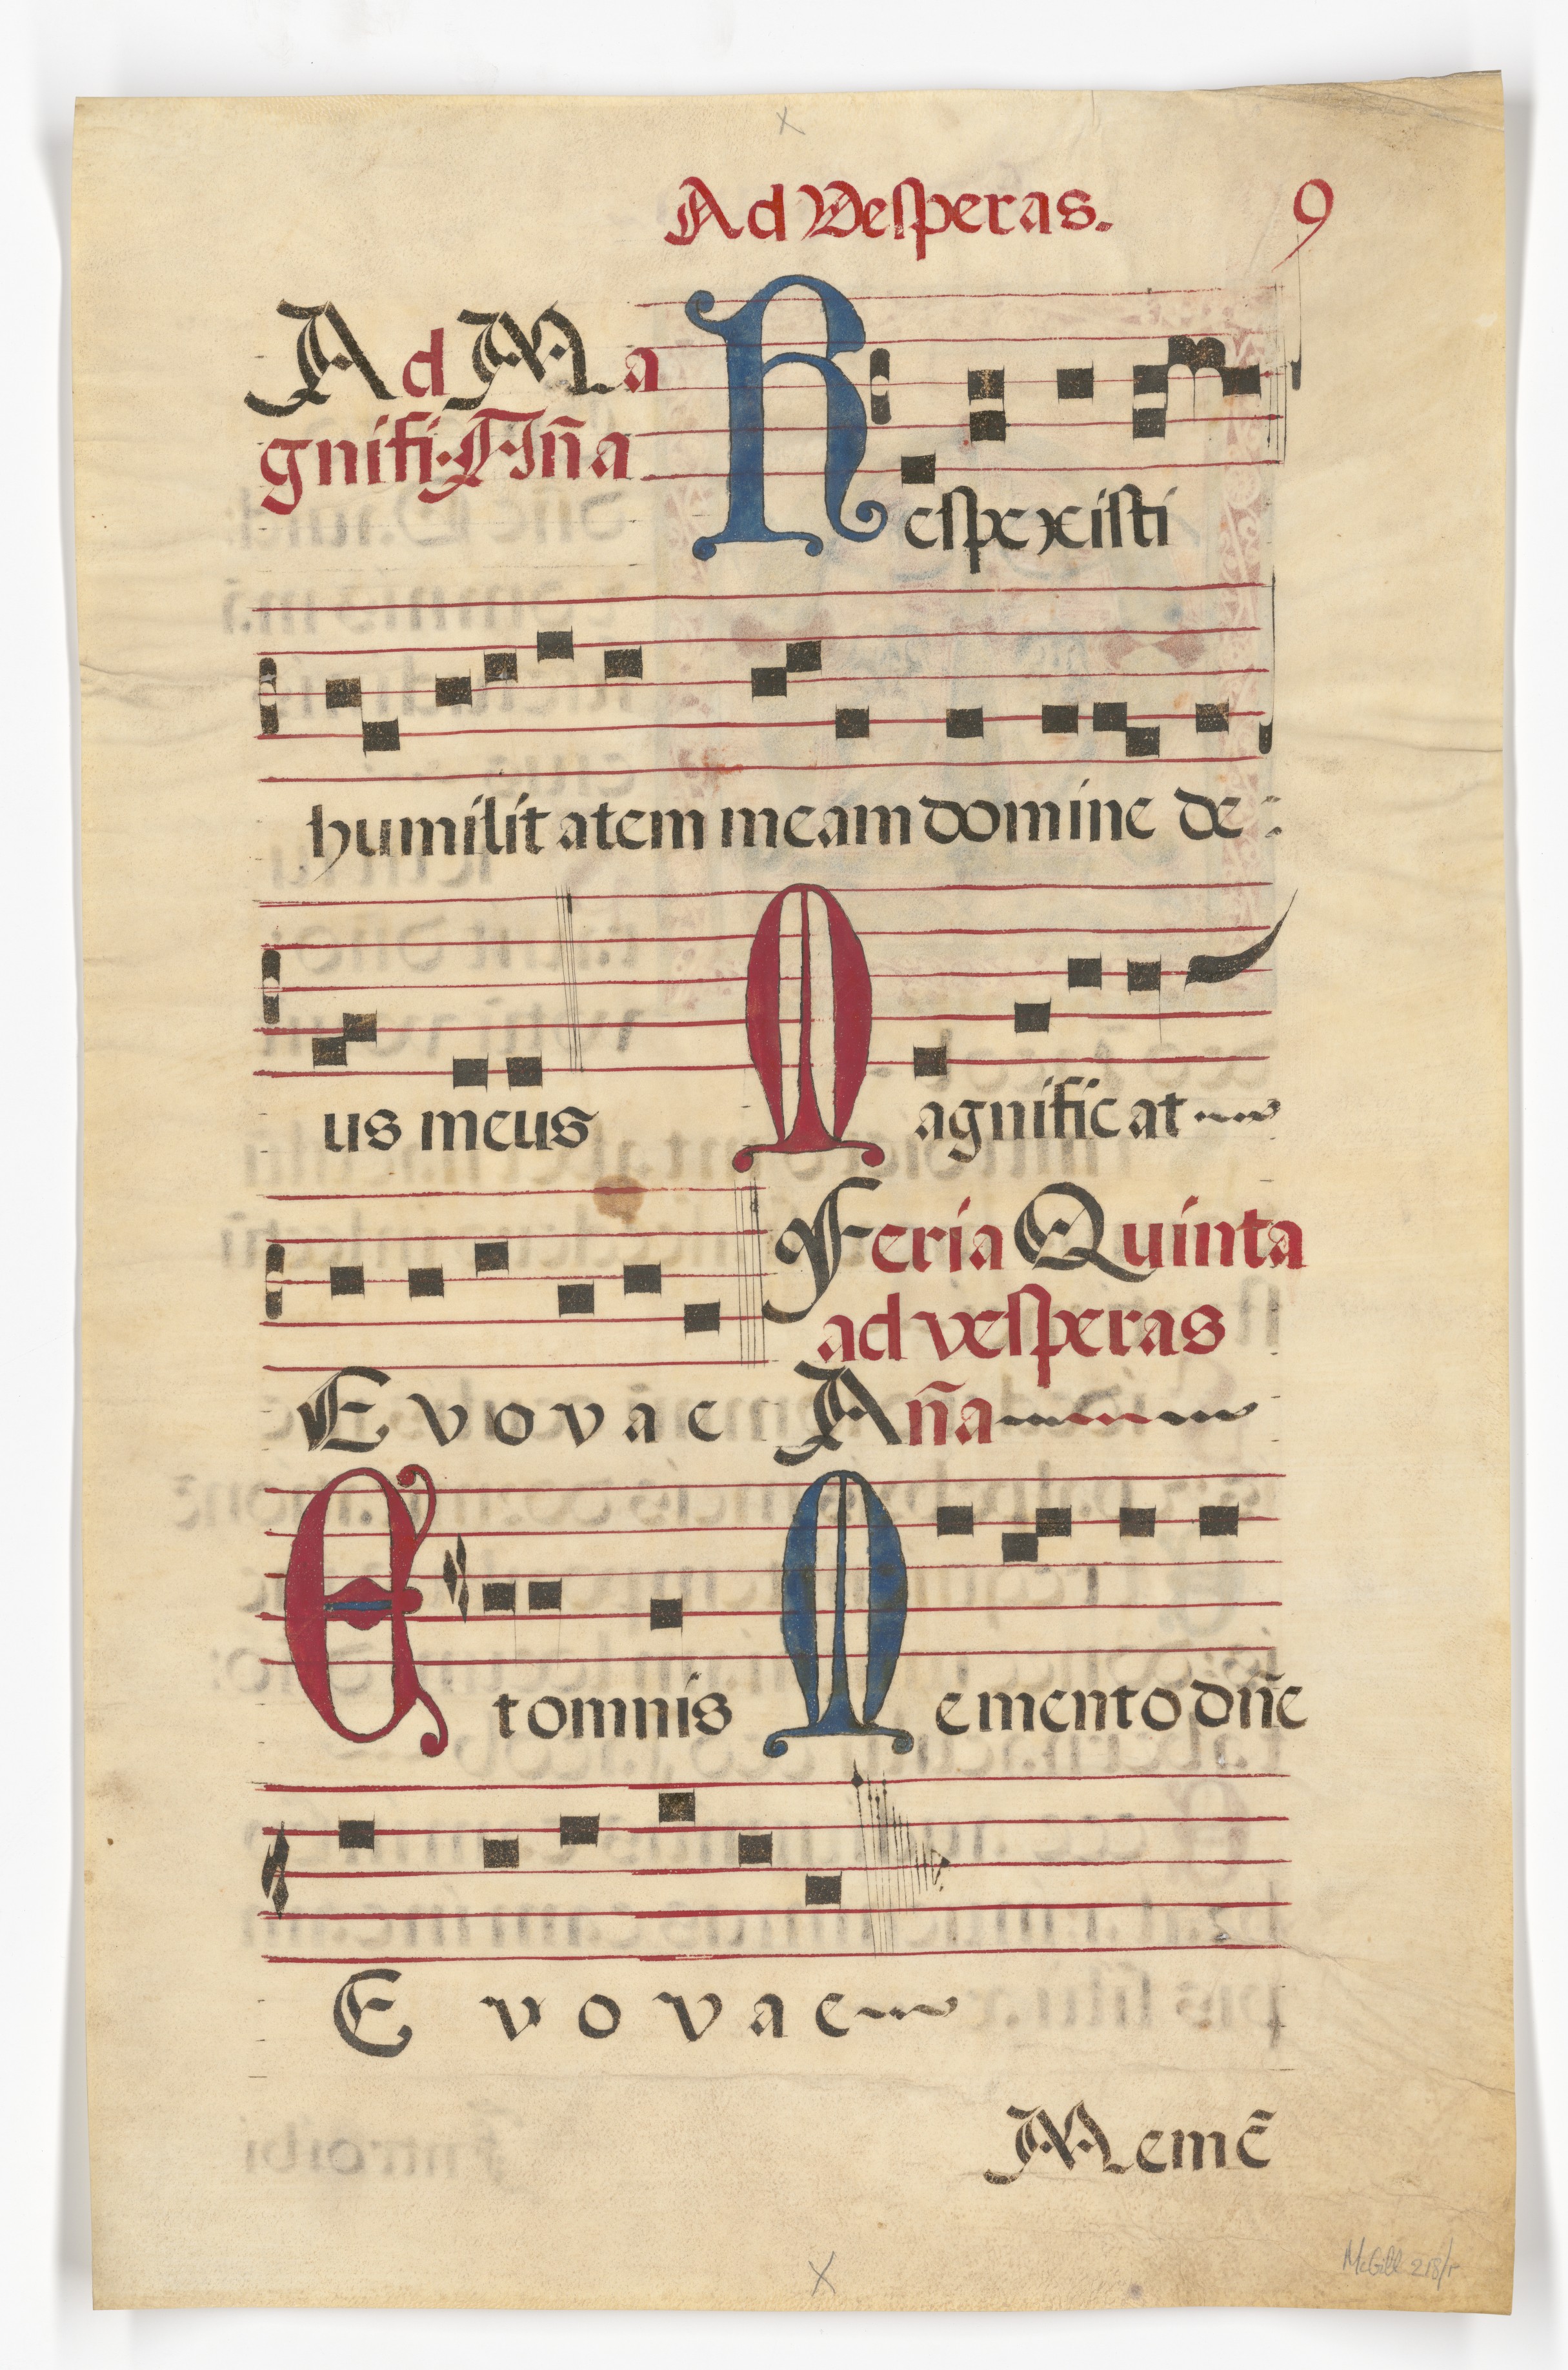 Ad Vesperas. 9
Ad Ma
gnifi. Aña
Respexisti
humilitatem meam domine de-
us meus Magnificat
Feria Quinta
ad vesperas
Evovae Aña
Et omnis Memento dñe
Evovae
Memē
McGill 218/r